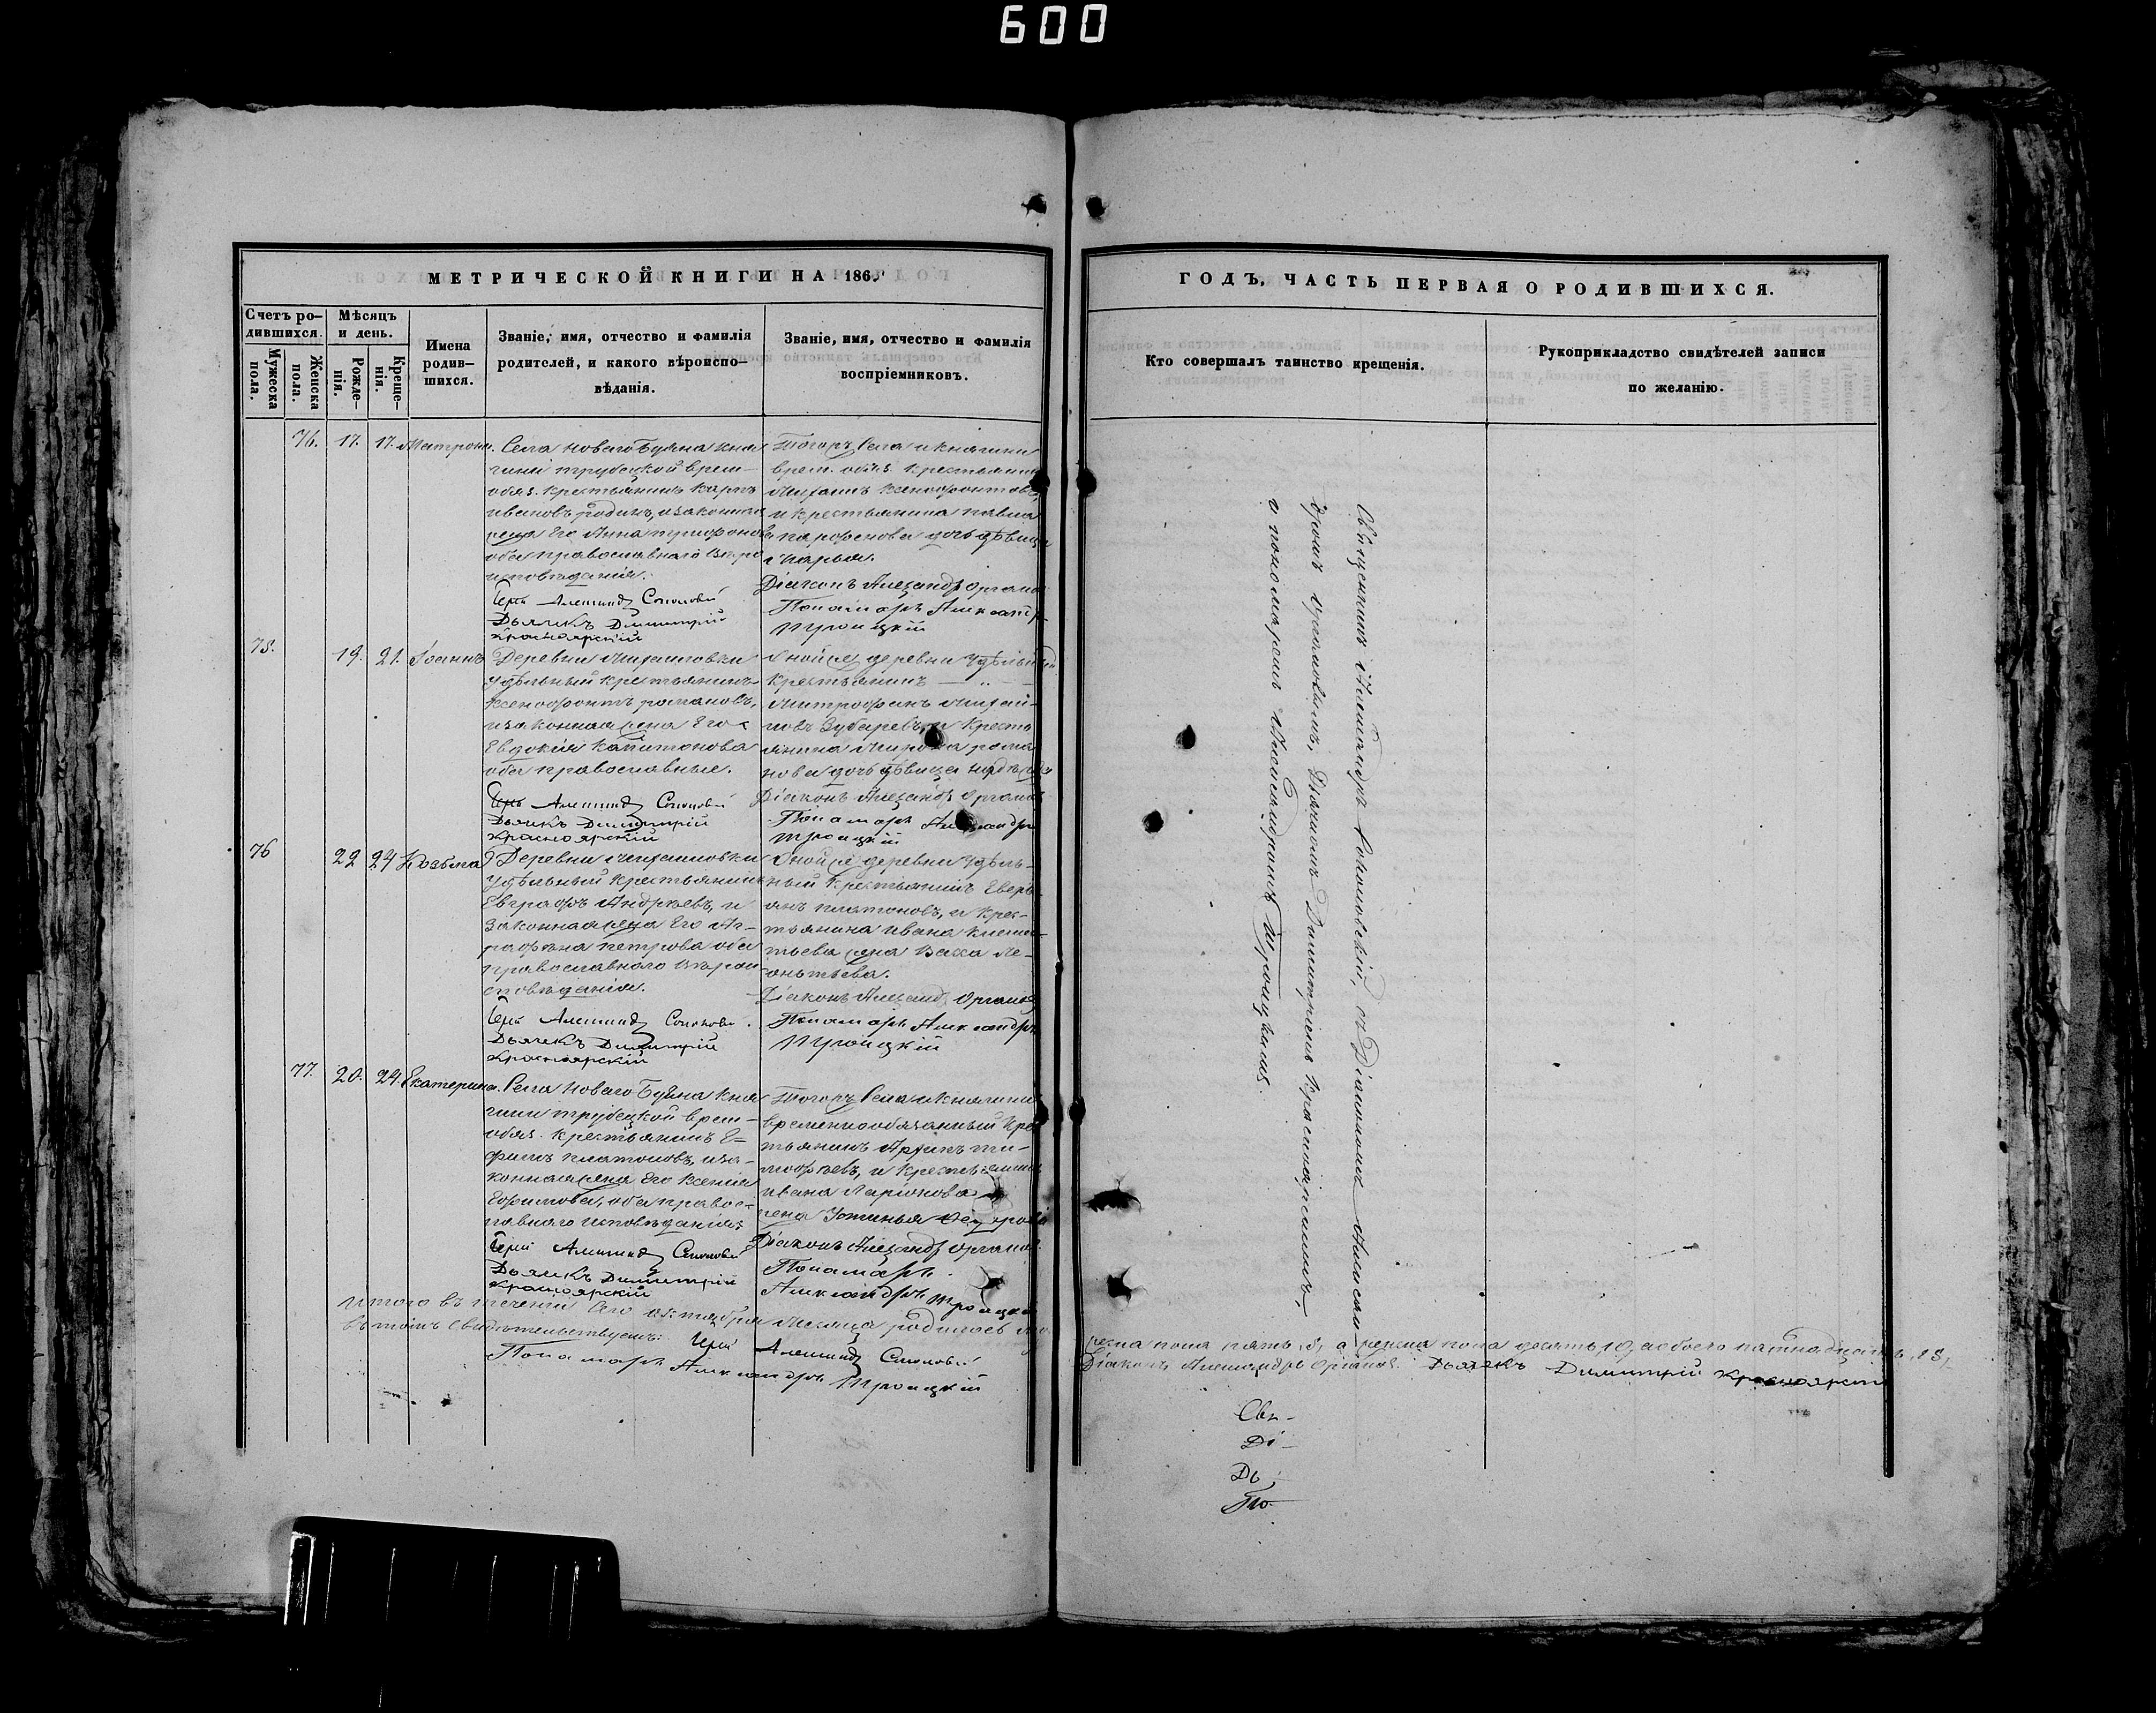 600
МЕТРИЧЕСКОЙ КНИГИ НА 186
Счетъ ро-
дившихся.
Мужеска
пола.
Женска
пола.
Мѣсяцъ
и день.
Рожде-
нія.
Креще-
нія.
Имена
родив-
шихся.
Званіе, имя, отчество и фамилія
родителей, и какого вѣроиспо-
вѣданія.
Званіе, имя, отчество и фамилія
воспріемниковъ.
76. 17. 17. Матрона.
Села Новаго Буяна кня
гини трубецкой врем-
обяз. крестьянинъ Карпъ
ивановъ родинъ, и законная
жена Его Анна
оба православнаго вѣро
исповѣданія.
Іерей Александръ Соколовскій
Дьячекъ Димитрій
Красноярскій
Тогожъ Села и княгини
врем. обяз. крестьянинъ
Ксенофонтовъ,
и крестьянина павла
парфенова дочь дѣвица
Дарья.
Діаконъ Александръ Органовъ
Пономарь Александръ
Троицкій
75. 19. 21. Іоаннъ
Деревни Михайловки
Удѣльный крестьянинъ
Ксенофонтъ романовъ,
и законная жена Его
Евдокія Капитонова
оба православные.
Іерей Александръ Соколовскій
Дьячекъ Димитрій
Красноярскій
Оной же деревни Удѣльный
крестьянинъ
Митрофанъ Михай-
ловъ Зубаревъ, и кресть
янина Мирона рома
нова дочь дѣвица
Діаконъ Александръ Органовъ
Пономарь Александръ
Троицкій
76 22 24 Козьма
Деревни Михайловки
Удѣльный крестьянинъ
Евграфъ Андреевъ, и
законная жена Его Аг-
рафѣна петрова оба
православнаго вѣрои
сповѣданія.
Іерей Александръ Соколовскій.
Дьячекъ Димитрій
Красноярскій
Оной же деревни Удѣль-
ный крестьянинъ
платоновъ, и крес-
тьянина ивана
жена Васса Ле-
онтьева.
Діаконъ Александръ Органовъ
Пономарь Александръ
Троицкій
77. 20. 24. Екатерина.
Села Новаго Буяна кня
гини трубецкой врем-
обяз. крестьянинъ Е=
фимъ платоновъ, и за-
конная жена Его Ксенія
Ефимова, оба правос-
лавнаго исповѣданія
Іерей Александръ Соколовскій
Дьячекъ Димитрій
Красноярскій
Тогожъ Села и княгини
временнообязанный крес
тьянинъ Архипъ ти-
мофѣевъ, и крестьянина
ивана Ларіонова
жена Устинья
Діаконъ Александръ Органовъ.
Пономарь
Александръ Троицкій
Итого въ теченіи Сего октября месяца родилось
въ томъ Свидѣтельствуемъ: Іерей Александръ Соколовскій
Пономарь Александръ Троицкій
ГОДЪ, ЧАСТЬ ПЕРВАЯ О РОДИВШИХСЯ.
Кто совершалъ таинство крещенія.
Рукоприкладство свидѣтелей записи
по желанію.
Священникъ Александръ Соколовскій, съ Діакономъ Алексан-
дромъ Органовымъ, Дьячкомъ Димитріемъ Красноярскимъ,
и пономаремъ Александромъ Троицкимъ.
жеска пола пять, 5, а женска пола десять 10, а обоего пятнадцать, 15,
Діаконъ Александръ Органовъ. Дьячекъ Димитрій Красноярскій
Свя-
Ді-
Дь-
По-